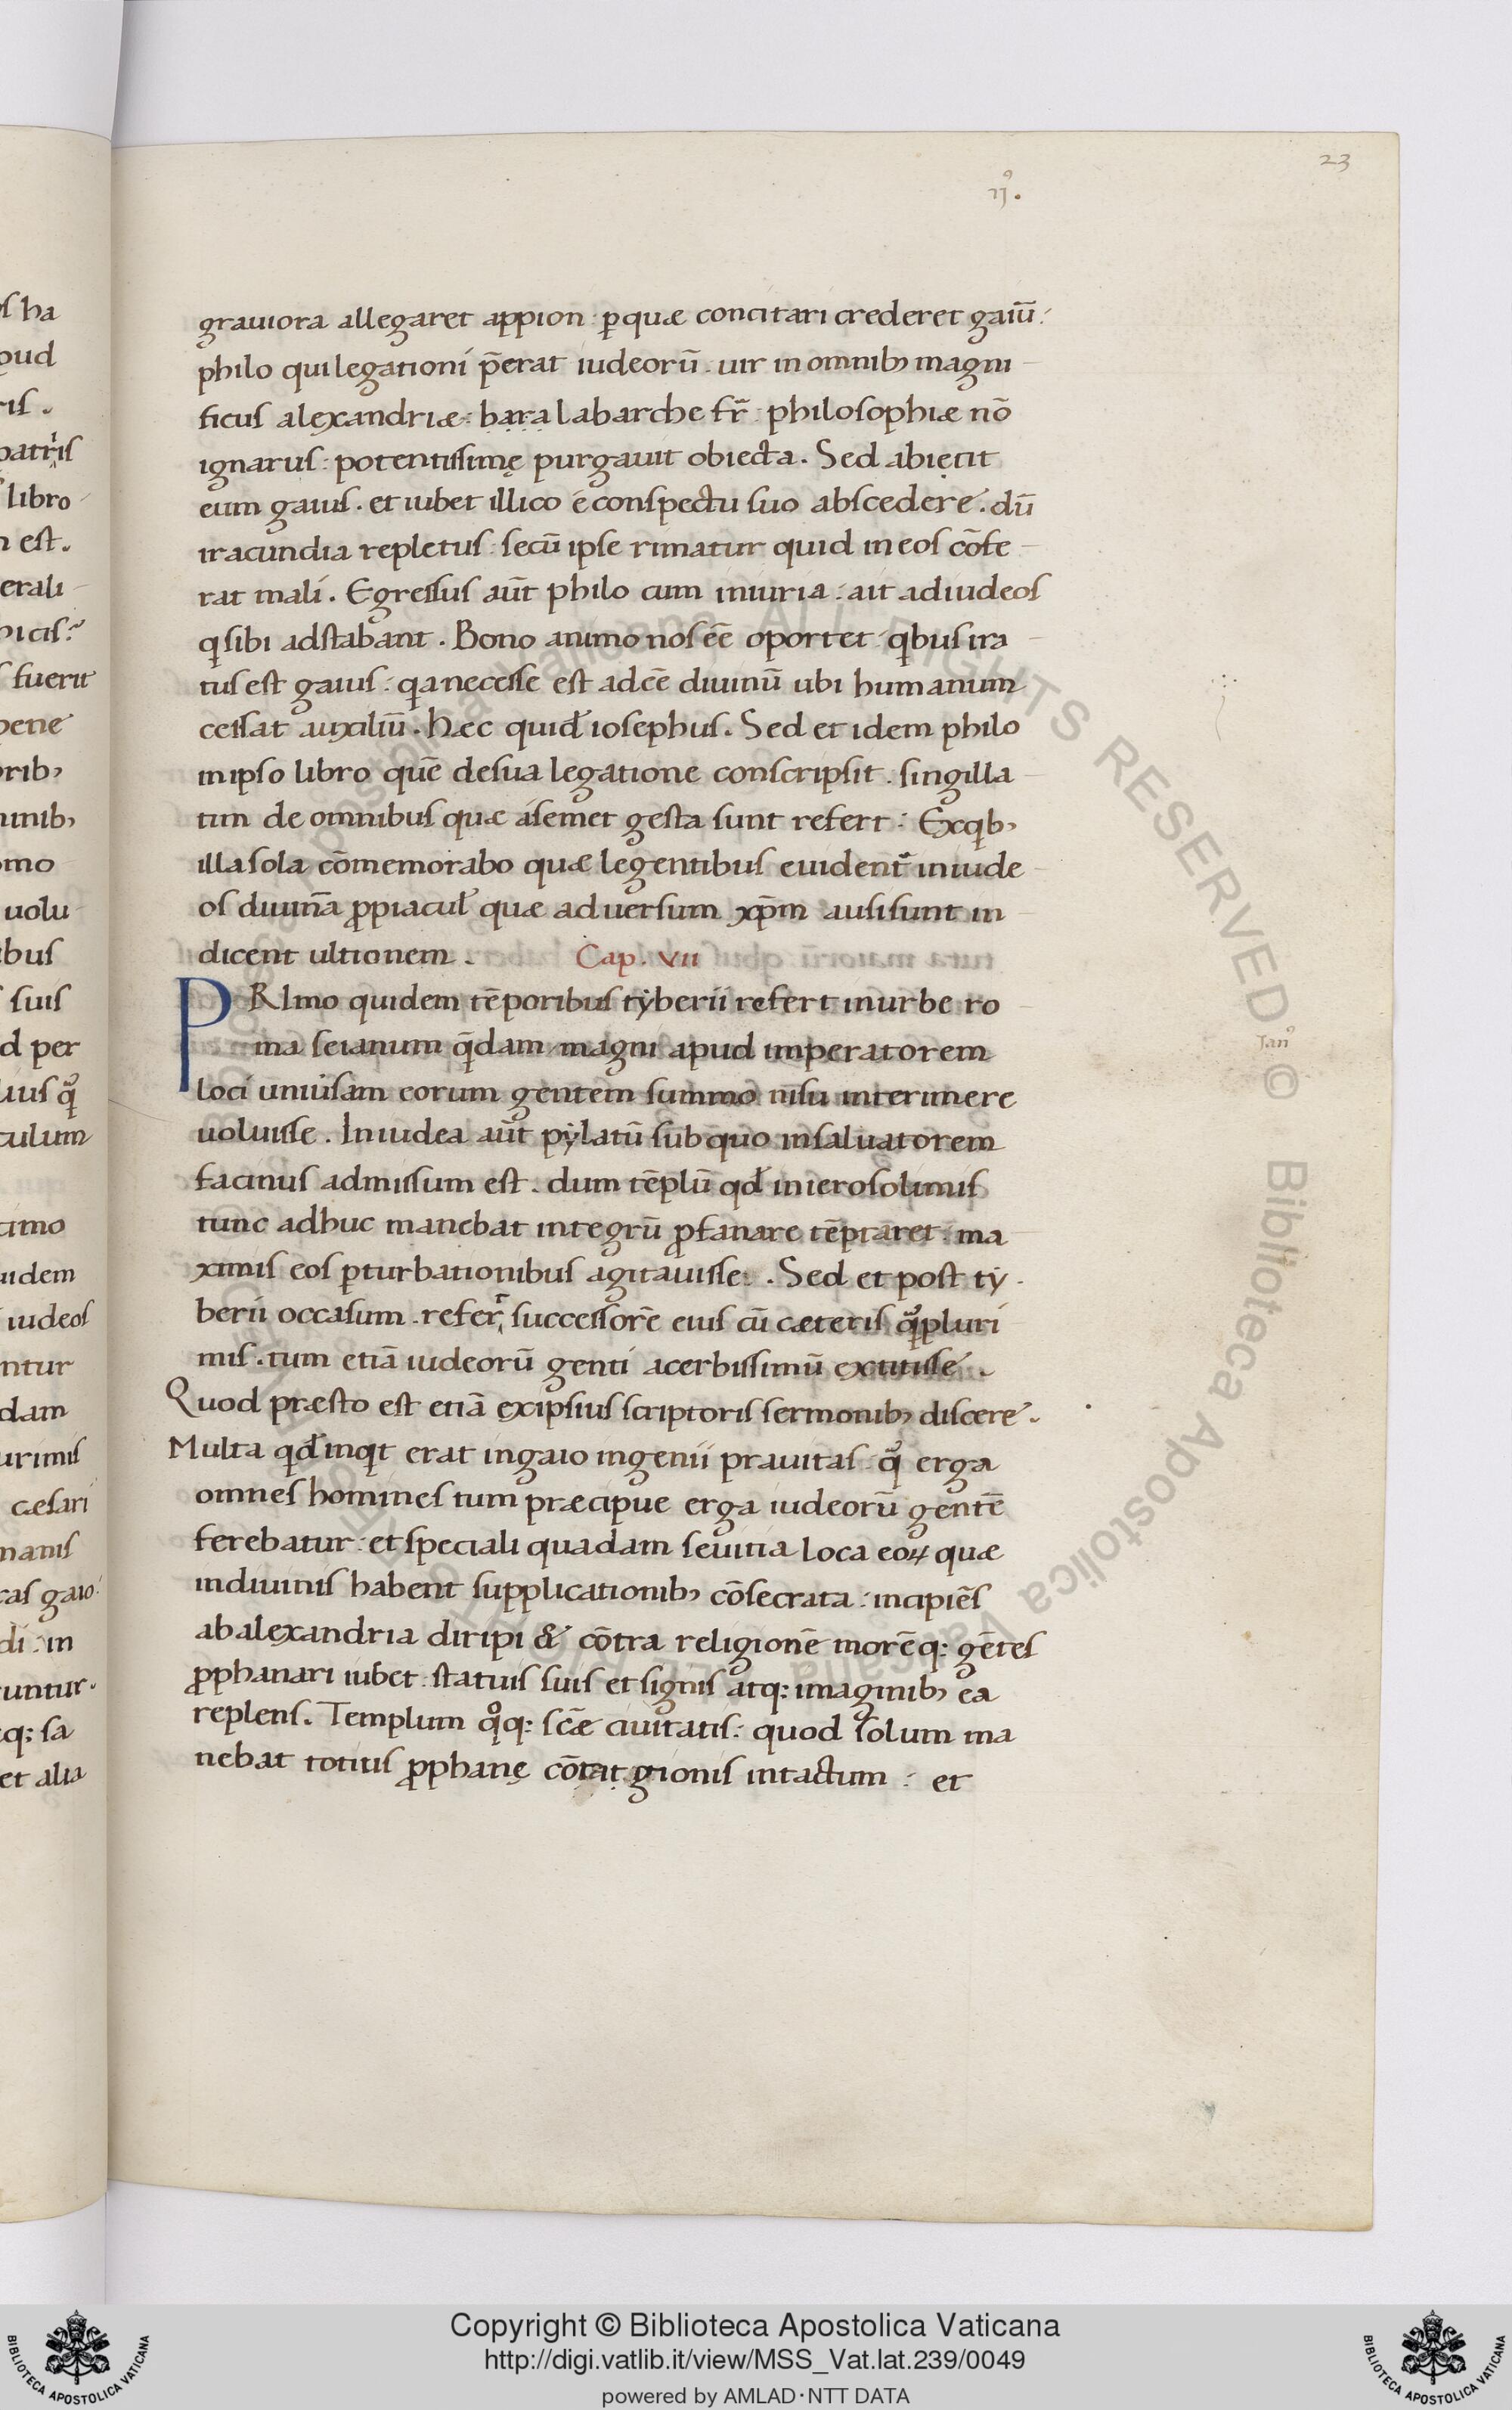 23
ıȷ⁹.
grauiora allegaret appion : ꝑ quæ concitari crederet gaiū :
philo qui legationi p̄erat iudeorū . uir in omnibꝫ magni
ficus alexandriæ : bara labarche fr̄ : philosophiæ nō
ignarus : potentissimę purgauit obiecta . Sed abiecit
eum gaius . et iubet illico e conspectu suo abscedere . dū
iracundia repletus : secū ipse rimatur quid in eos cōfe
rat mali . Egressus aūt philo cum iniuria : ait ad iudeos
q̇ sibi adstabant . Bono animo nos eē oportet q̇bus ira
tus est gaius : q̇a necesse est adeē diuinū ubi humanum
cessat auxiliū . hæc quid̄ iosephus . Sed et idem philo
in ipso libro quē de sua legatione conscripsit . singilla
tim de omnibus quæ a semet gesta sunt refert : Ex q̇bꝫ
illa sola cōmemorabo quæ legentibus euident̄ in iude
os diuīna ꝓ piacul̄ quæ aduersum xp̄m ausi sunt in
dicent ultionem . Cap . VII
PRImo quidem tēporibus tẏberii refert in urbe ro
ma seianum q̄dam magni apud imperatorem
loci uniūsam eorum gentem summo nisu interimere
uoluisse . In iudea aūt pẏlatū sub quo in saluatorem
facinus admissum est . dum tēplū qd̄ in ierosolimis
tunc adhuc manebat integrū ꝓfanare tēptaret : ma
ximis eos ꝑturbationibus agitauisse : . Sed et post tẏ
berii occasum . refert successorē eius cū cæteris q̄pluri
mis . tum etiā iudeorū genti acerbissimū extitisse .
Quod præsto est etiā ex ipsius scriptoris sermonibꝫ discere .
Multa qd̄ inq̇t erat in gaio ingenii prauitas : q̄ erga
omnes homines tum præcipue erga iudeorū gentē
ferebatur : et speciali quadam seuitia loca eoꝝ quæ
in diuinis habent supplicationibꝫ cōsecrata : incipiēs
ab alexandria diripi & cōtra religionē morēq: gētes
ꝓphanari iubet : statuis suis et signis atq: imaginibꝫ ea
replens . Templum q̊q: sc̄æ ciuitatis : quod solum ma
nebat totius ꝓphanę cōtagionis intactum : et
Tan⁹
s ha
pud
ris .
patris
libro
n est .
erali
bicis :
s fuerit
pene
oribꝫ
minibꝫ
omo
uolu
ibus
suis
d per
uius q̄
culum
timo
uidem
iudeos
ntur
dam
urimis
cæsari
manis
cas gaio
di : in
runtur .
q: sa
et alia
© Biblioteca Apostolica Vaticana
ALL RIGHTS RESERVED
Copyright © Biblioteca Apostolica Vaticana
http://digi.vatlib.it/view/MSS_Vat.lat.239/0049
powered by AMLAD·NTT DATA
BIBLIOTECA APOSTOLICA VATICANA
BIBLIOTECA APOSTOLICA VATICANA